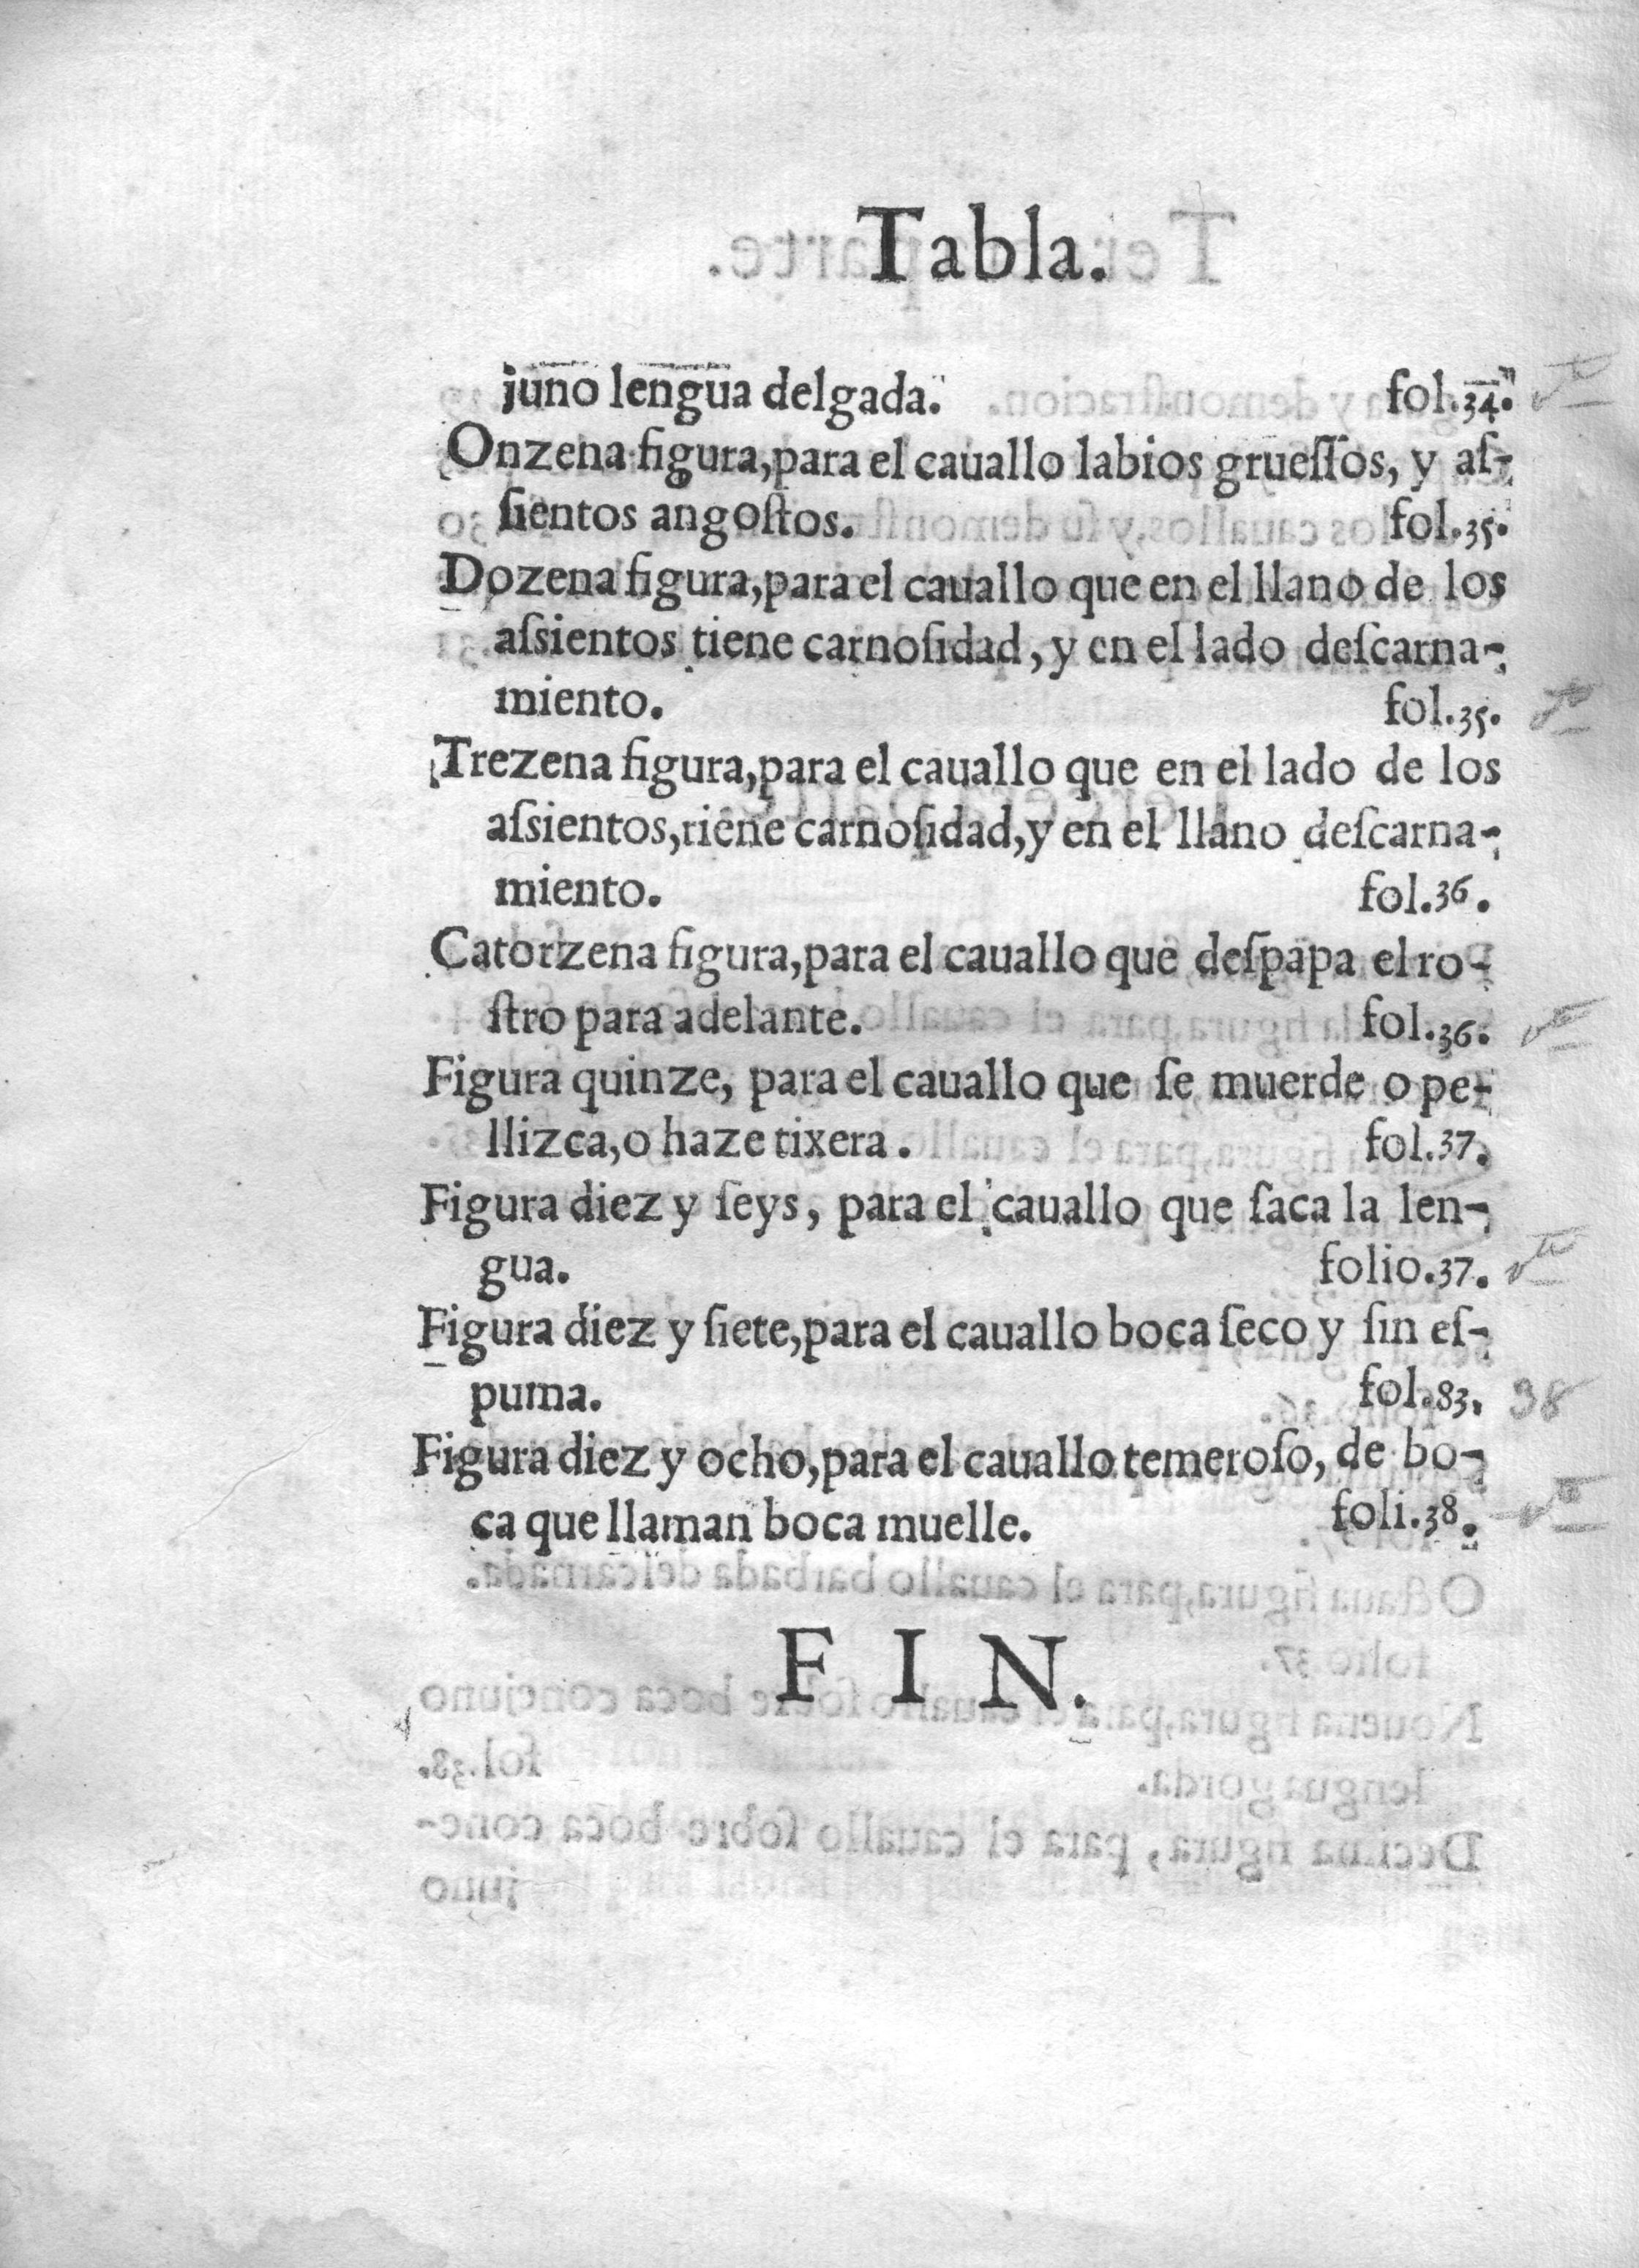 Tabla.
juno lengua delgada. fol.34.
Onzena figura,para el cauallo labios grueſſos, y aſ-
ſientos angoſtos. fol.35.
Dozena figura,para el cauallo que en el llano de los
aſsientos tiene carnoſidad, y en el lado deſcarna-
miento. fol.35.
Trezena figura,para el cauallo que en el lado de los
aſsientos,tiene carnoſidad,y en el llano deſcarna-
miento. fol.36.
Catorzena figura,para el cauallo que deſpapa el ro-
ſtro para adelante. fol.36.
Figura quinze, para el cauallo que ſe muerde o pe-
llizca,o haze tixera. fol.37.
Figura diez y ſeys, para el cauallo que ſaca la len-
gua. folio.37.
Figura diez y ſiete,para el cauallo boca ſeco y ſin eſ-
puma. fol.83. 38
Figura diez y ocho,para el cauallo temeroſo, de bo-
ca que llaman boca muelle. foli.38.
FIN.